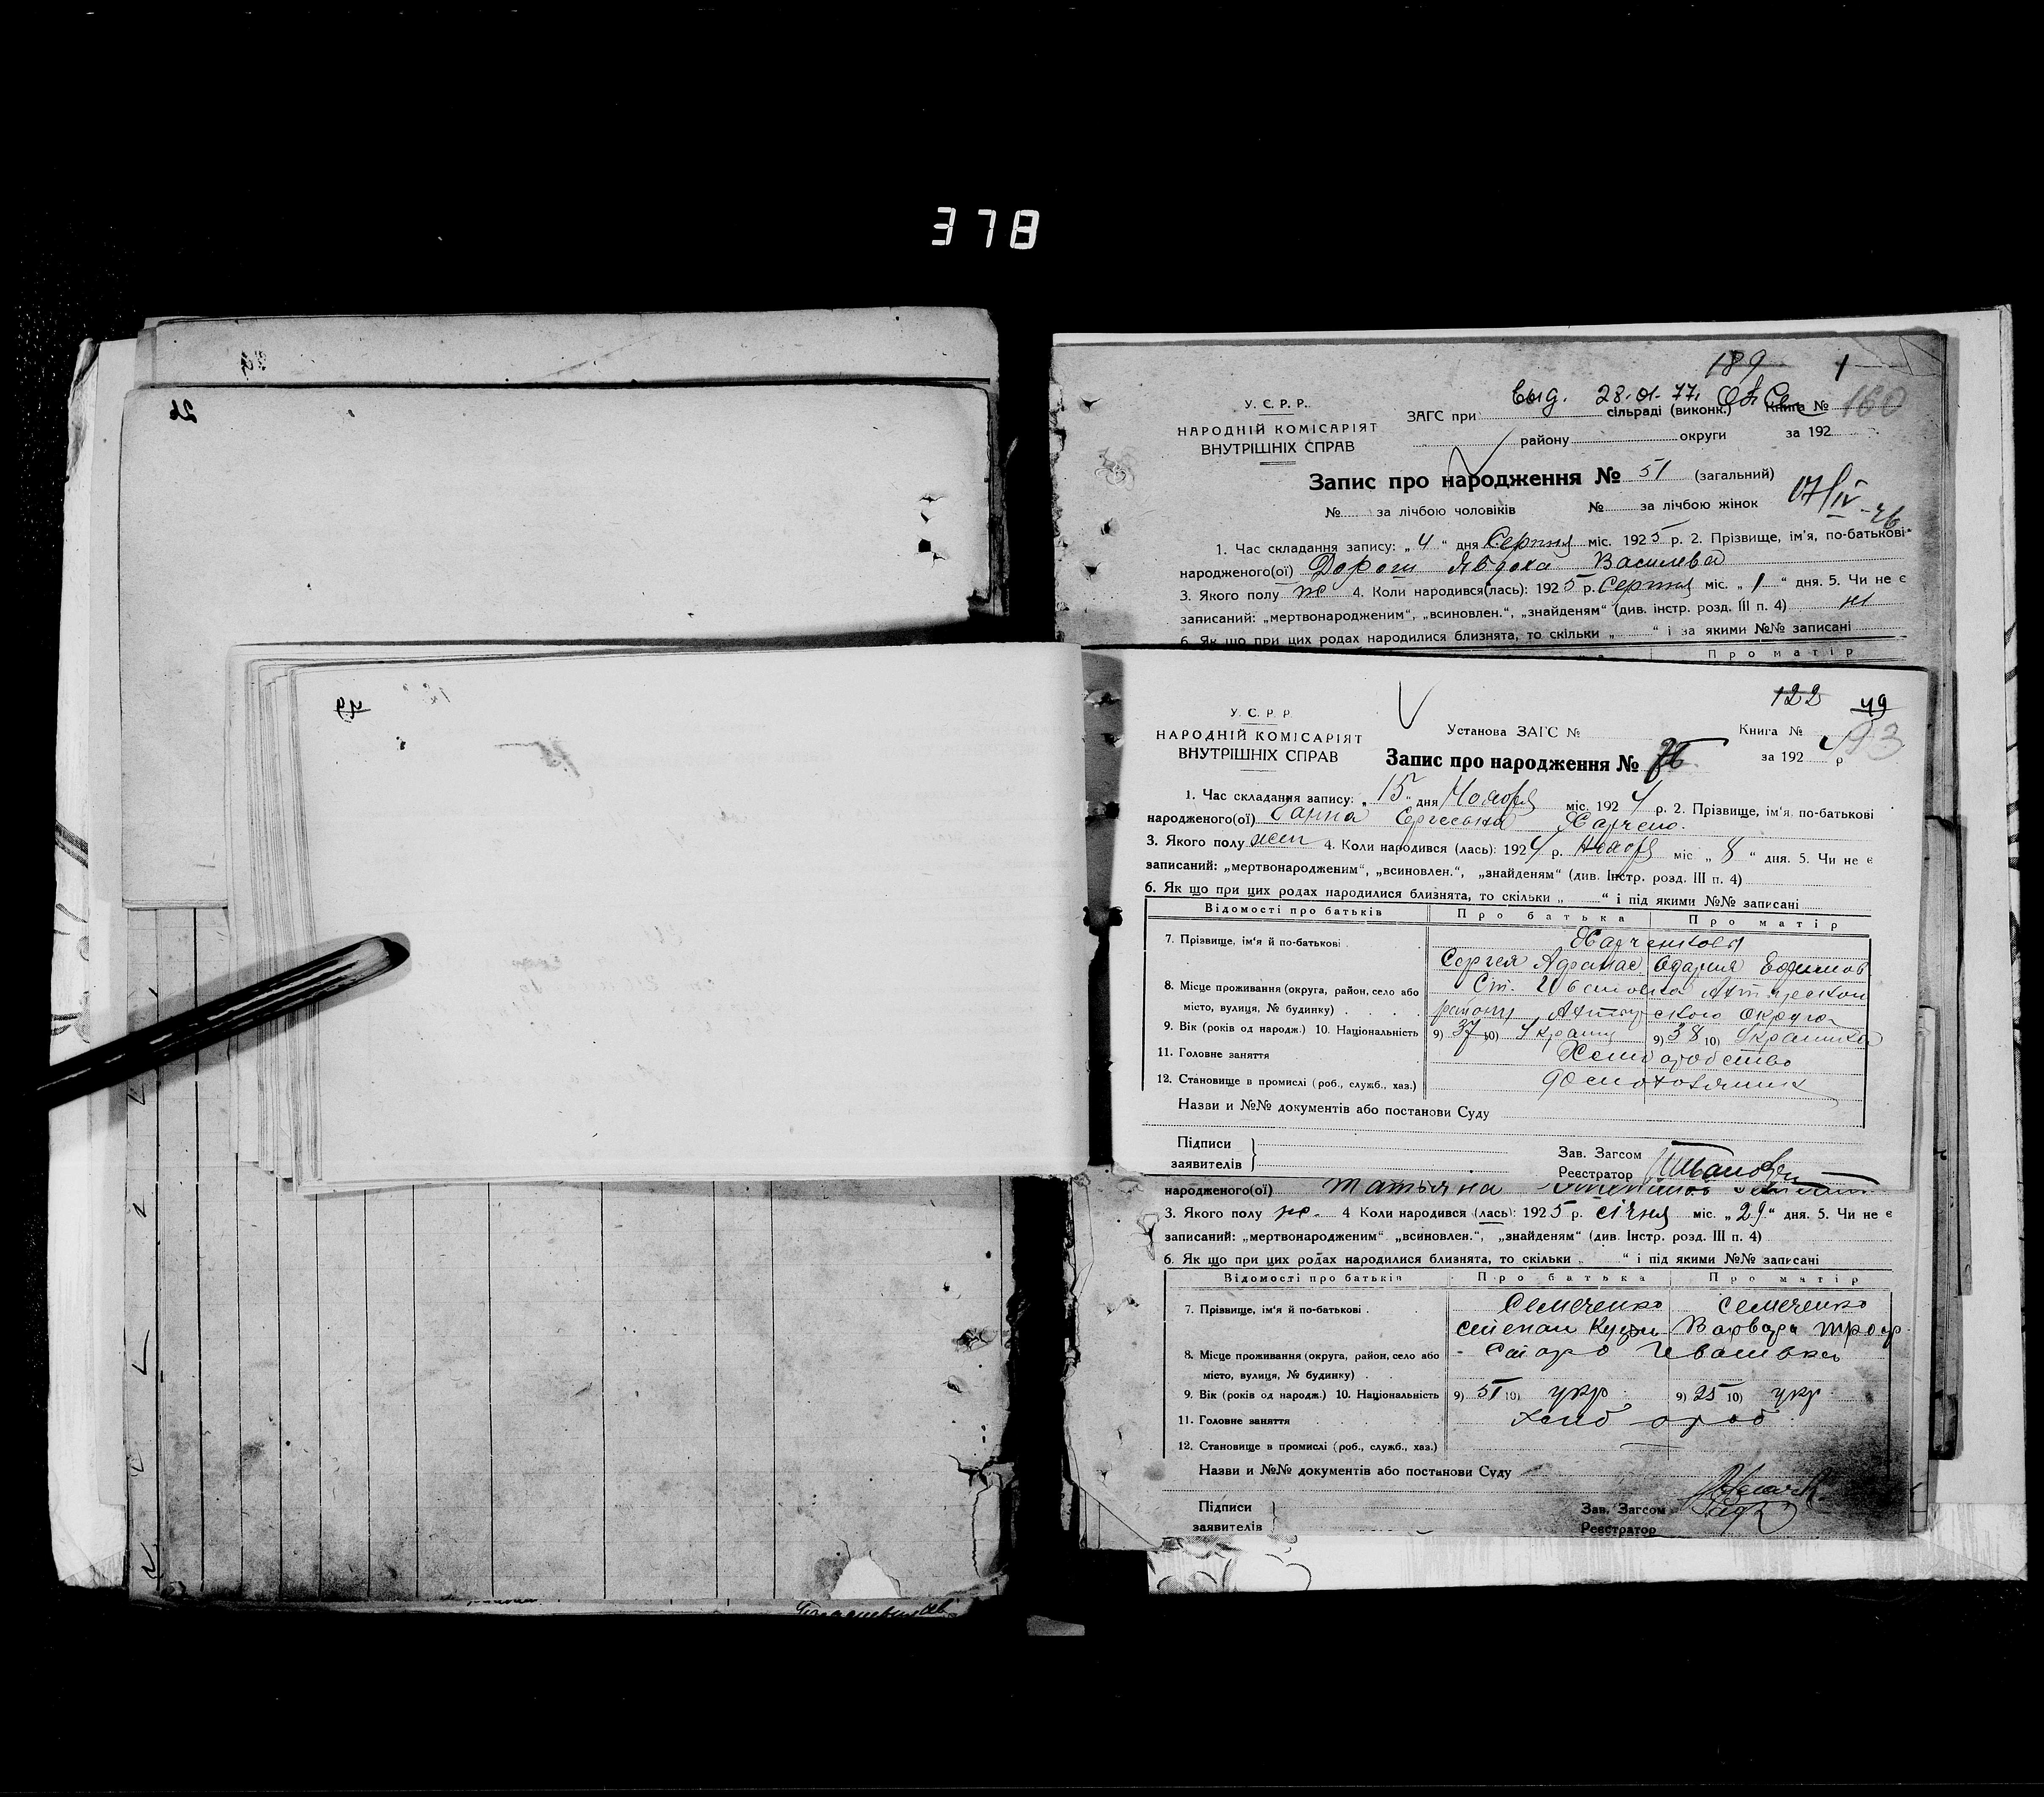 378
26
49
189 1
выд. 28.01.77.
160
У. С. Р. Р.
НАРОДНІЙ КОМІСАРІЯТ
ВНУТРІШНІХ СПРАВ
ЗАГС при сільраді (виконк.) Книга №
району округи за 192
Запис про народження № 51 (загальний)
№ за лічбою чоловіків № за лічбою жінок
17/IV-76
1. Час складання запису: „ 4 “ дня Серпня міс. 1925 р. 2. Прізвище, ім'я, по-батькові
народженого(ої) Дорош Явдоха Василева
3. Якого полу ж 4. Коли народився(лась): 1925 р. Серпня міс. „ 1 “ дня. 5. Чи не є
записаний: „мертвонародженим“, „всиновлен.“, „знайденям“ (див. інстр. розд. III п. 4) ні
6. Як що при цих родах народилися близнята, то скільки „ “ і за якими №№ записані
Про матір
122 49
93
У. С. Р. Р.
НАРОДНІЙ КОМІСАРІЯТ
ВНУТРІШНІХ СПРАВ
Установа ЗАГС № Книга №
Запис про народження № 76 за 192 р
1. Час складання запису: „ 15 “ дня Ноября міс. 1924 р. 2. Прізвище, ім'я, по-батькові
народженого(ої) Ганна Сергеевна Харченко
3. Якого полу жен 4. Коли народився (лась): 1924 р. Ноября міс „ 8 “ дня. 5. Чи не є
записаний: „мертвонародженим“, „всиновлен.“, „знайденям“ (див. Інстр. розд. III п. 4)
6. Як що при цих родах народилися близнята, то скільки „ “ і під якими №№ записані
Відомості про батьків Про батька Про матір
7. Прізвище, ім'я й по-батькові Харченковы
Сергея Афанас Одария Ефимов
8. Місце проживання (округа, район, село або Ст. Ивановка
місто, вулиця, № будинку) району округа
9. Вік (років од народж.) 10. Національність 9) 37 10) Украинц 9) 38 10) Украинка
11. Головне заняття Хлиборобство
12. Становище в промислі (роб., служб., хаз.)
Назви и №№ документів або постанови Суду
Підписи
заявителів
Зав. Загсом
Реєстратор
народженого(ої) Татьяна
3. Якого полу ж. 4 Коли народився (лась): 1925 р. січня міс. „ 29 “ дня. 5. Чи не є
записаний: „мертвонародженим“ „всиновлен.“, „знайденям“ (див. Інстр. розд. III п. 4)
6. Як що при цих родах народилися близнята, то скільки „ “ і під якими №№ записані
Відомості про батьків Про батька Про матір
7. Прізвище, ім'я й по-батькові Семеченко Семеченко
Степан Кузм Варвара Троф
8. Місце проживання (округа, район, село або Старо Ивановка
місто, вулиця, № будинку)
9. Вік (років од народж.) 10. Національність 9) 51 10) укр 9) 25 10) укр
11. Головне заняття хліб ороб
12. Становище в промислі (роб., служб., хаз.)
Назви и №№ документів або постанови Суду
Підписи
заявителів
Зав. Загсом
Реєстратор